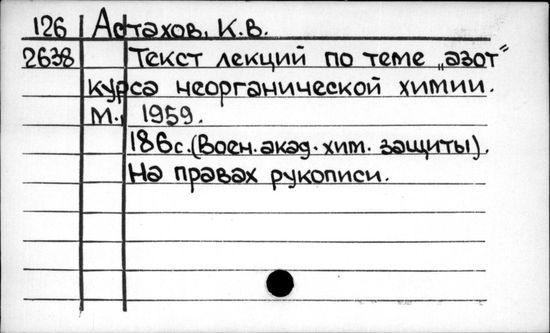 126 Астахов, К.В.
2638 Текст лекций по теме „азот"
курса неорганической химии.
М., 1959.
186с.(Воен.акад.хим. защиты).
На правах рукописи.